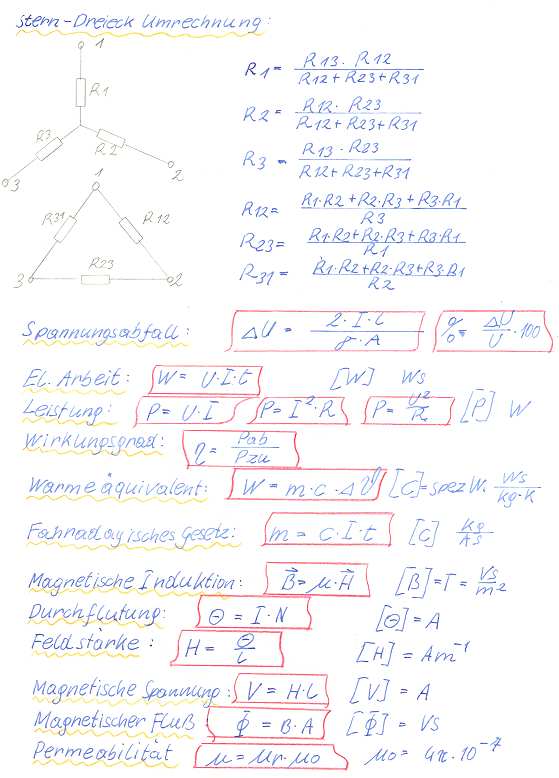 Stern-Dreieck Umrechnung:
1
R1
R3
R2
3
2
1
R31
R12
R23
3
2
R1 = R13 · R12 / R12 + R23 + R31
R2 = R12 · R23 / R12 + R23 + R31
R3 = R13 · R23 / R12 + R23 + R31
R12 = R1·R2 + R2·R3 + R3·R1 / R3
R23 = R1·R2 + R2·R3 + R3·R1 / R1
R31 = R1·R2 + R2·R3 + R3·R1 / R2
Spannungsabfall: ΔU = 2·I·l / γ·A % = ΔU / U · 100
El. Arbeit: W = U·I·t [W] Ws
Leistung: P = U·I P = I²·R P = U² / R [P] W
Wirkungsgrad: η = Pab / Pzu
Wärmeäquivalent: W = m·c·Δϑ [C] = spez W. Ws / kg·K
Fahradayisches Gesetz: m = c·I·t [c] Kg / As
Magnetische Induktion: B⃗ = μ·H⃗ [B] = T = Vs / m²
Durchflutung: Θ = I·N [Θ] = A
Feldstärke: H = Θ / l [H] = Am⁻¹
Magnetische Spannung: V = H·l [V] = A
Magnetischer Fluß Φ = B·A [Φ] = Vs
Permeabilität μ = μr·μo μo = 4π·10⁻⁷